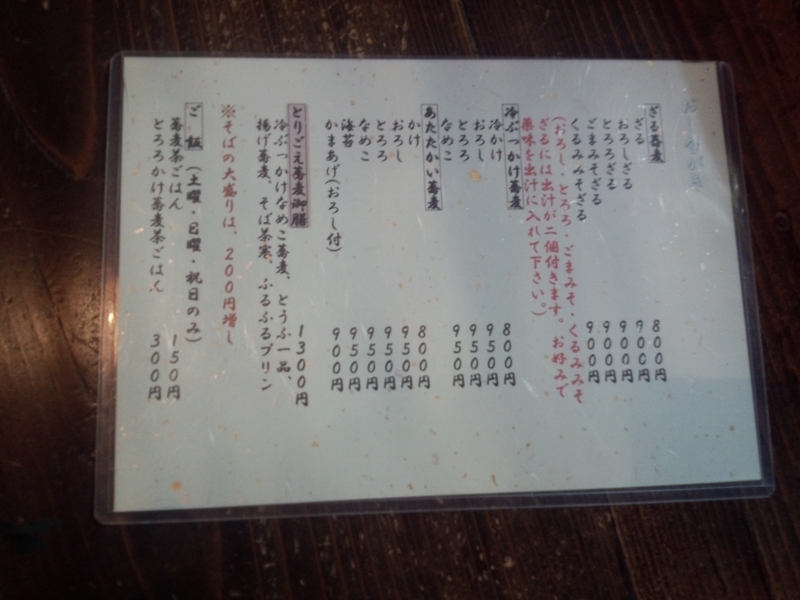 おしながき
ざる蕎麦
ざる 800円
おろしざる 900円
とろろざる 900円
ごまみそざる 900円
くるみみそざる 900円
(おろし・とろろ・ごまみそ・くるみみそ
ざるには出汁が二個付きます。お好みで
薬味を出汁に入れて下さい。)
冷ぶっかけ蕎麦
冷かけ 800円
おろし 950円
とろろ 950円
なめこ 950円
あたたかい蕎麦
かけ 800円
おろし 950円
とろろ 950円
なめこ 950円
海苔 950円
かまあげ(おろし付) 900円
とりごえ蕎麦御膳 1300円
冷ぶっかけなめこ蕎麦、とうふ一品、
揚げ蕎麦、そば茶寒、ふるふるプリン
※そばの大盛りは、200円増し
ご飯 (土曜・日曜・祝日のみ)
蕎麦茶ごはん 150円
とろろかけ蕎麦茶ごはん 300円